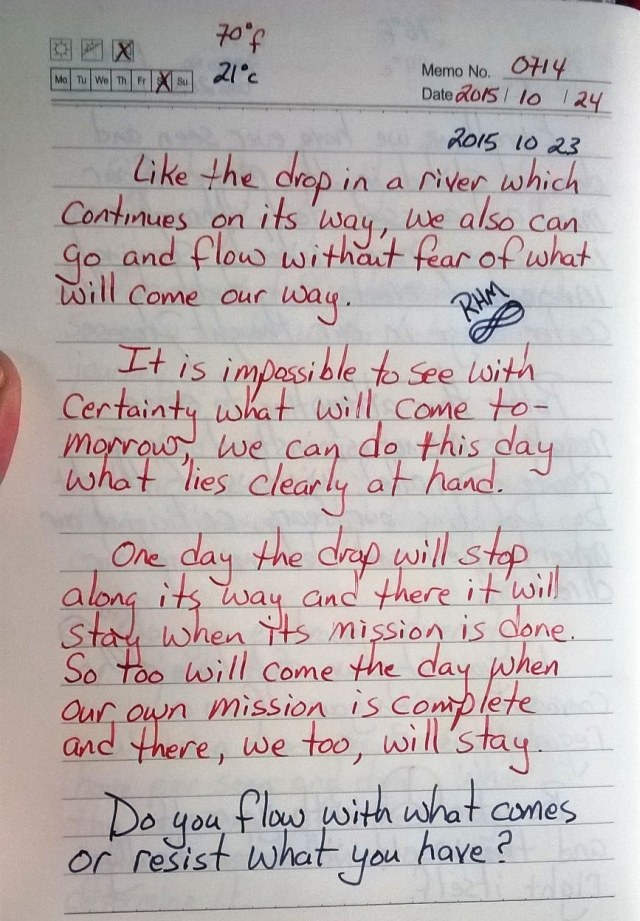 70°f
21°c
Mo Tu We Th Fr Su
Memo No. 0714
Date 2015 / 10 / 24
2015 10 23
Like the drop in a river which
Continues on its way, we also can
go and flow without fear of what
will come our way.
RHM
It is impossible to see with
Certainty what will come to-
morrow, we can do this day
what lies clearly at hand.
One day the drop will stop
along its way and there it will
stay when its mission is done.
So too will come the day when
our own mission is complete
and there, we too, will stay.
Do you flow with what comes
or resist what you have?